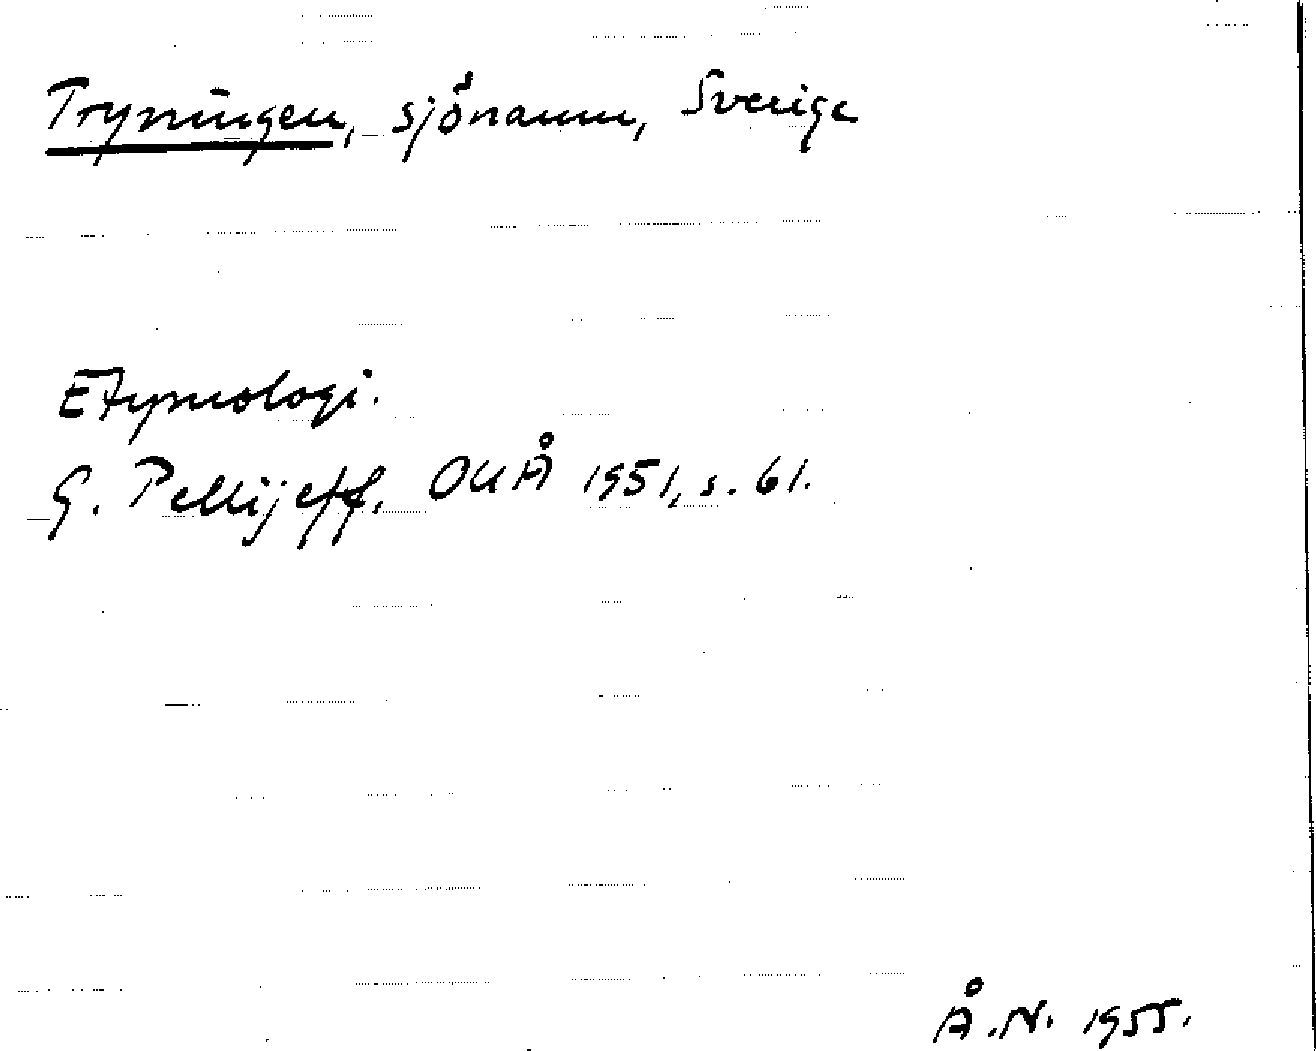 Tryningen, sjönamn, Sverige
Etymologi.
G. Pellijeff, OUÅ 1951, s. 61.
Å.N. 1955.